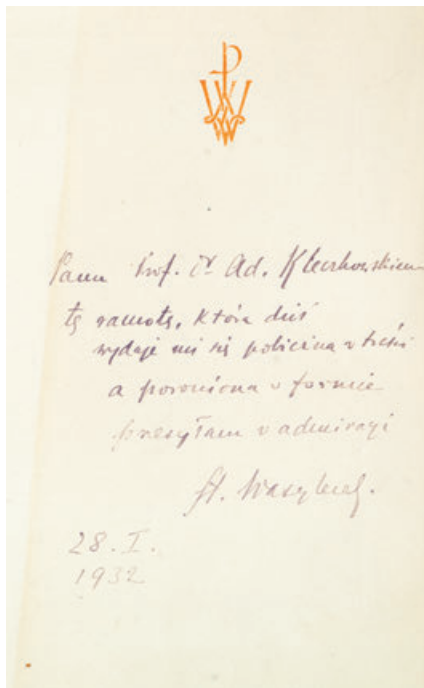 Panu Prof. Dr Ad. Kleczkowskiemu
tę ramotę, która dziś
wydaje mi się pobieżna w treści
a poroniona w formie
przesyłam w admiracji
St. Wasylewski.
28. I.
1932